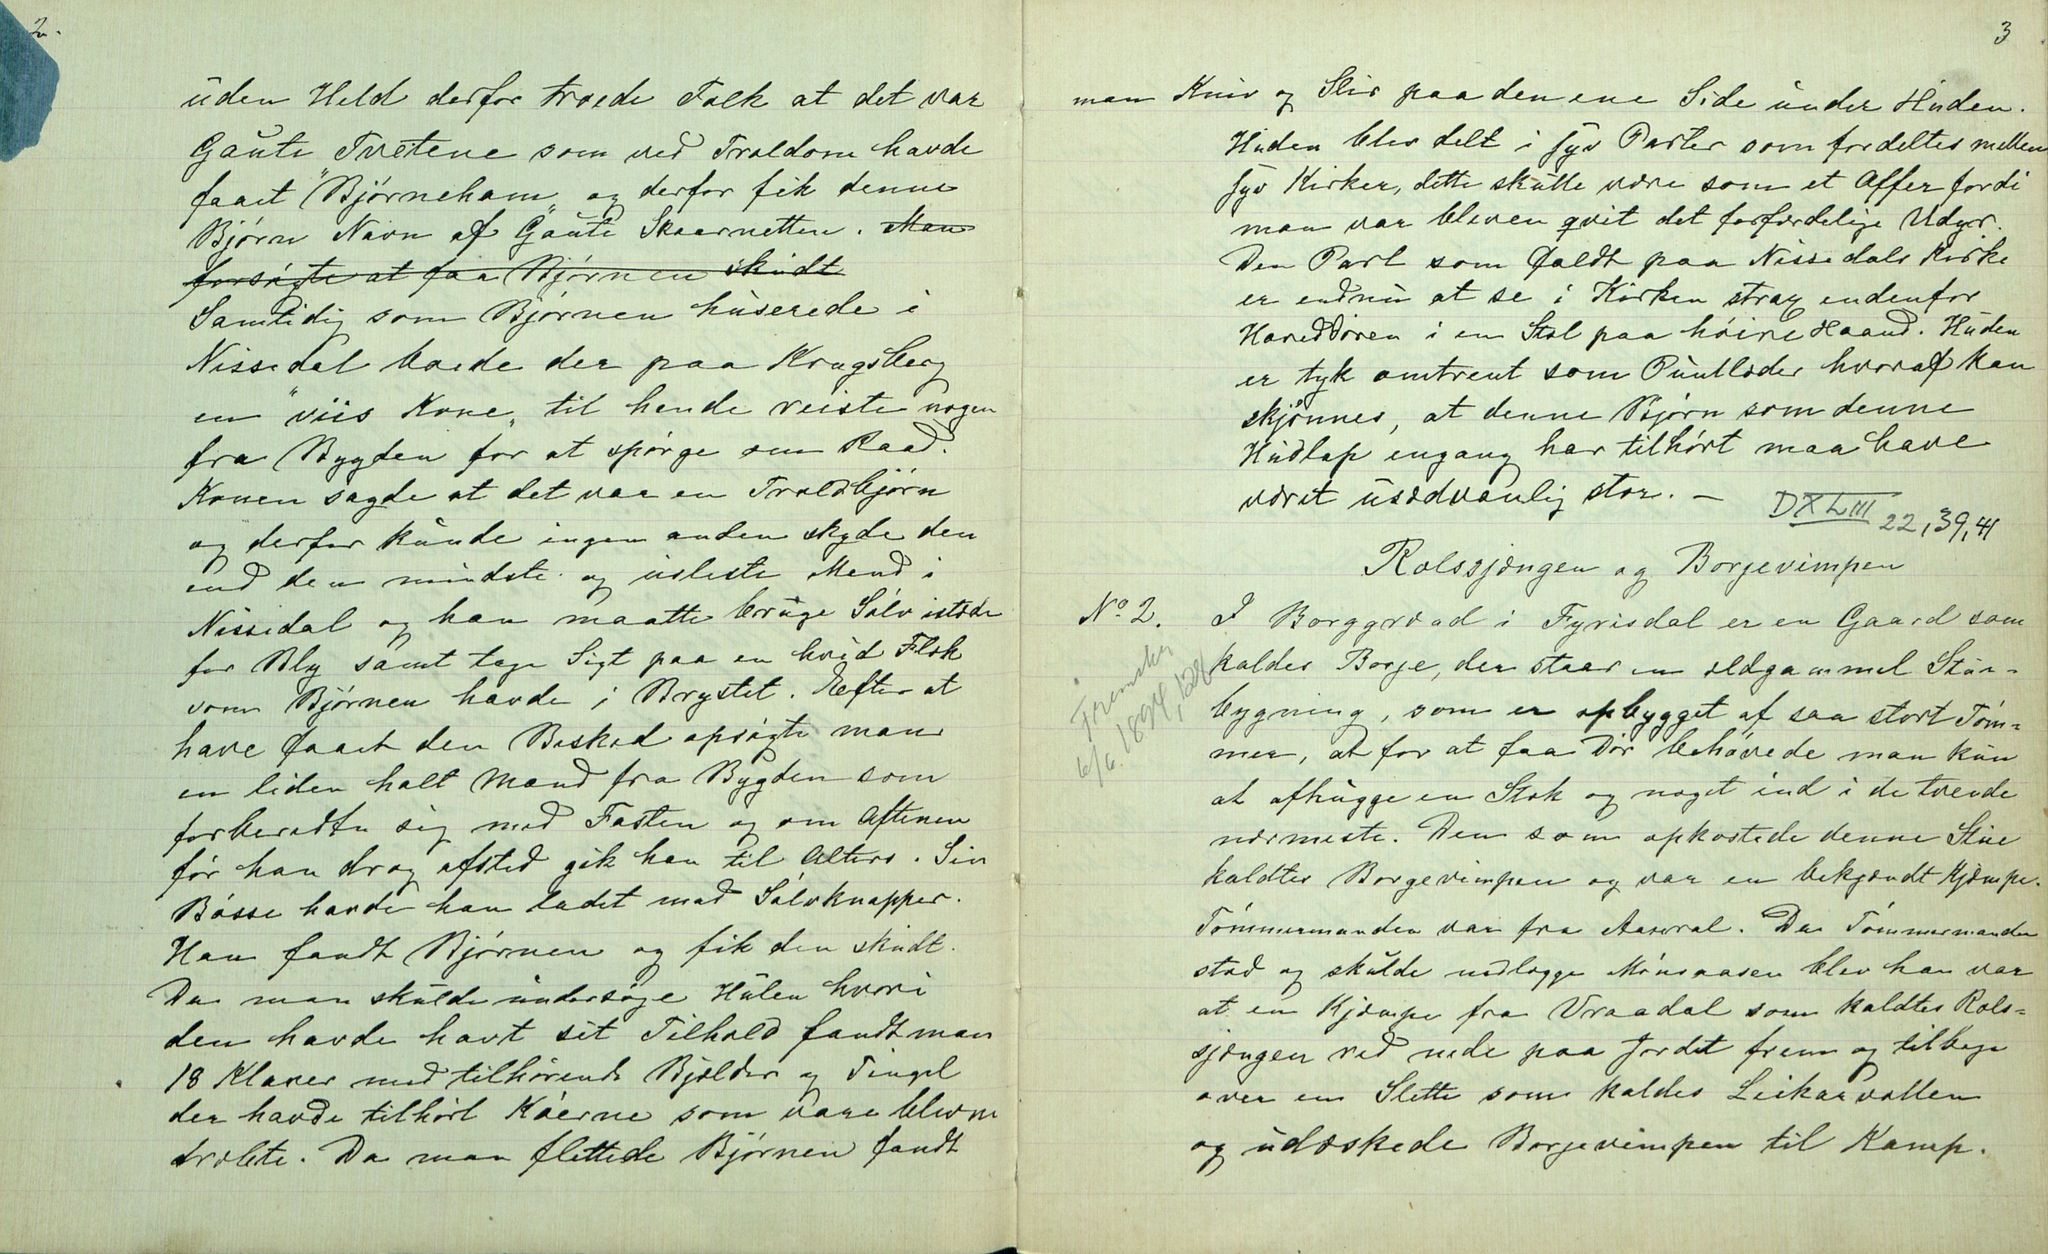 2.
uden Held derfor troede Folk at det var
Gaute Tvetene som ved Troldom havde
faaet "Bjørneham" og derfor fik denne
Bjørn Navn af Gaute Skaarnetten. Man
forsøgte at faa Bjørnen skudt
Samtidig som Bjørnen huserede i
Nissedal boede der paa Kragsberg
en "viis Kone" til hende reiste nogen
fra Bygden for at spørge om Raad.
Konen sagde at det var en Troldbjørn
og derfor kunde ingen anden skyde den
end den mindste og usleste Mand i
Nissedal og han maatte bruge Sølv istedn
for Bly samt tage Sigt paa en hvid Flek
som Bjørnen havde i Brystet. Efter at
have faaet den Besked opsøgte man
en liden halt Mand fra Bygden som
forberedte sig med Fasten og om Aftenen
før han drog afsted gik han til Alters. Sin
Bøsse havde han ladet med Sølvknapper.
Han fandt Bjørnen og fik den skudt.
Da man skulde undersøge Hulen hvori
den havde havt sit Tilhold fandt man
18 Klaver med tilhørende Bjølder og Tingel
der havde tilhørt Køerne som vare blevne
dræbte. Da man flettede Bjørnen fandt
3
man Kniv og Slir paa den ene Side under Huden.
Huden blev delt i syv Parter som fordeltes mellem
syv Kirker, dette skulle være som et Offer fordi
man var bleven qvit det forfærdelige Udyr.
Den Part som faldt paa Nissedals Kirke
er endnu at se i Kirken strax indenfor
Hoveddøren i en Stol paa høire Haand. Huden
er tyk omtrent som Puntlæder hvoraf kan
skjønnes, at denne Bjørn som denne
Hudlap engang har tilhørt maa have
været usædvanlig stor. —
DXLIII 22, 39, 41
Rolssjængen og Borjevimpen
No 2. I Borggrænd i Fyrisdal er en Gaard som
kaldes Borje, der staar en ældgammel Stue-
bygning, som er opbygget af saa stort Tøm-
mer, at for at faa Dør behøvede man kun
at afhugge en Stok og noget ind i de tvende
nærmeste. Den som opkostede denne Stue
kaldtes Borgevimpen og var en bekjendt Kjæmpe.
Tømmermanden var fra Aaseral. Da Tømmermanden
stod og skulde nedlægge Mønsaasen blev han var
at en Kjæmpe fra Vraadal som kaldtes Rols-
sjængen red nede paa Jordet frem og tilbage
over en Slette som kaldes Leikarvollen
og udæskede Borjevimpen til Kamp.
6/6. 1894,